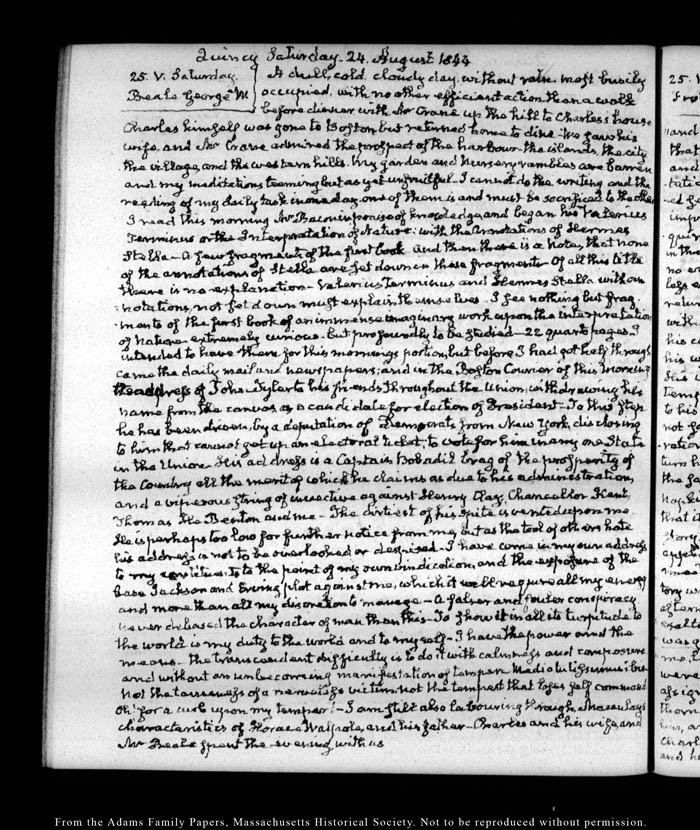 Quincy Saturday. 24. August 1844
25. V. Saturday.
Beale George W.
A chill, cold cloudy day, without rain most busily
occupied, with no other efficient action than a walk
before dinner with Mr Crane up the hill to Charles's house.
Charles himself was gone to Boston, but returned home to dine. We saw his
wife, and Mr Crane admired the prospect of the harbour, the islands, the city
the village, and the western hills. My garden and nursery rambles are barren
and my meditations teeming but as yet unfruitful. I cannot do the writing and the
reading of my daily task in one day, one of them is and must be sacrificed to the other
I read this morning Mr Bacon in praise of knowledge, and began his Valerius
Terminus or the Interpretation of Nature: with the annotations of Hermes
Stella — A few fragments of the first book and then there is a note, that none
of the annotations of Stella are set down in these fragments. Of all this title
there is no explanation. Valerius Terminus and Hermes Stella without
notations, not set down must explain themselves. I see nothing but frag
ments of the first book of an immense imaginary work upon the interpretation
of Nature extremely curious. but profoundly to be studied — 22 quarto pages. I
intended to have them for this mornings portion, but before I had got half through
came the daily mail and newspapers; and in the Boston Courier of this morning
the address of John Tyler to his friends throughout the Union, withdrawing his
name from the canvas, as a candidate for election of President — To this step
he has been driven, by a deputation of Democrats from New York, disclosing
to him that cannot get up an electoral ticket, to vote for him in any one State
in the Union. His address is a Captain Bobadil brag of the prosperity of
the Country all the merit of which he claims as due to his administration,
and a viperous string of invective against Henry Clay, Chancellor Kent,
Thomas H. Benton and me. The dirtiest of his spite is vented upon me.
He is perhaps too low for further notice from me, but as the tool of others hate
his address is not to be overlooked or despised. I have come in my own address
to my constituents to the point of my own vindication, and the exposure of the
base Jackson and Erving plot against me, which it will require all my energy
and more than all my discretion to manage — A falser and fouler conspiracy
never debased the character of man than this — To show it in all its turpitude to
the world is my duty to the world and to myself — I have the power and the
means — the transcendent difficulty is to do it with calmness and composure
and without an unbecoming manifestation of temper. Medio tutissimus ibis
not the tameness of a victim, not the tempest that loses self command
Oh! for a curb upon my temper! — I am still also labouring through Macaulay's
characteristics of Horace Walpole, and his father — Charles and his wife, and
Mr Beale spent the evening with us
25. V
and
that
and
From the Adams Family Papers, Massachusetts Historical Society. Not to be reproduced without permission.